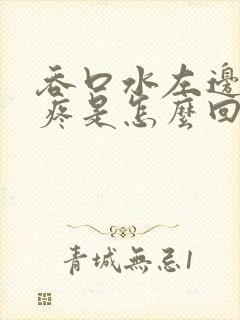 吞口水左邊
疼是怎麼回
青城無忌1